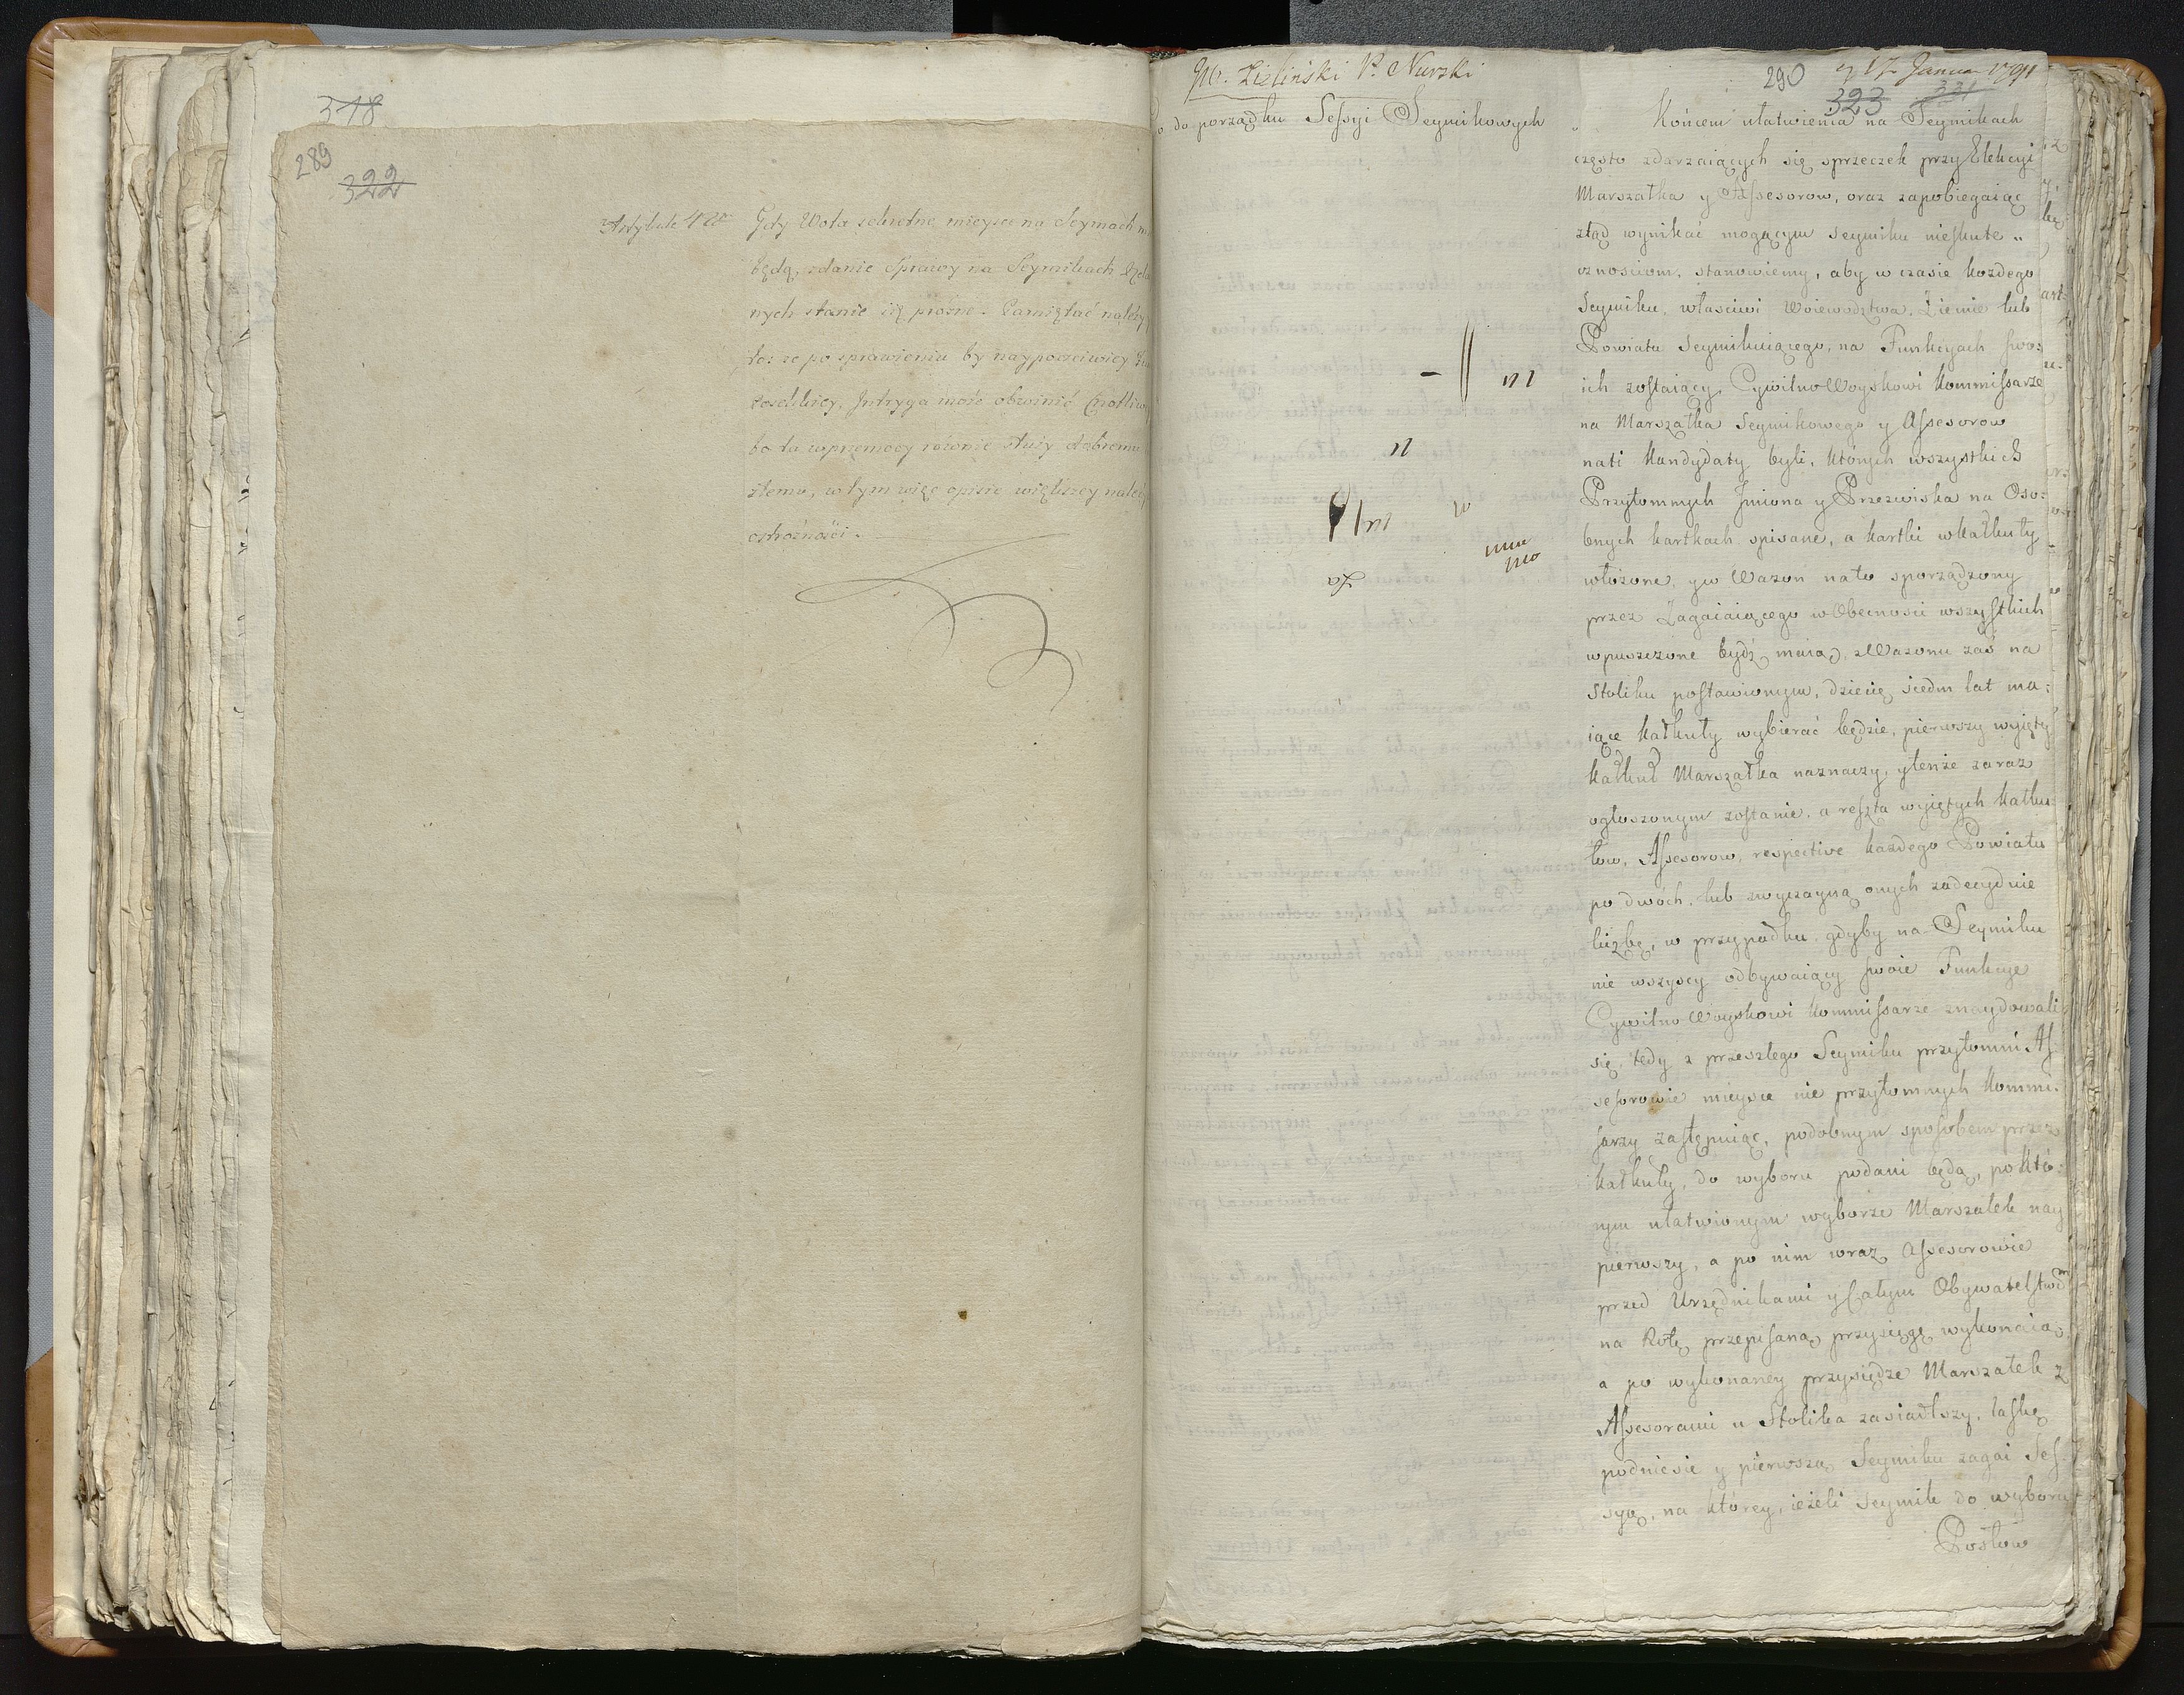 318
289
322
Artykuł 4to Gdy Wota sekretne mieysce na Seymach
będą, zdanie Sprawy na Seymikach
nych stanie się prózne. Pamiętać należy
też ze po sprawieniu by naypoczciwiey
Intryga może obwinić Cnotliw
bo ta wprzemocy rownie służy dobremu
złemu, w tym więc opisie większey należy
ostrożności.
JW. Zieliński P. Nurski
290
17 Januar 1791
323
331
do porządku Sessyi Seymikowych
Końcem ułatwienia na Seymikach
często zdarzaiących się sprzeczek przy Elekcyi
Marszałka y Assesorow, oraz zapobiegaiąc
ztąd wynikać mogącym seymiku nieskute„
cznościom, stanowiemy, aby w czasie kozdego
Seymiku, właściwi Woiewodztwa, Ziemie lub
Powiatu Seymikuiącego, na Funkcyach swo:
ich zostaiący, Cywilno Woyskowi Kommissarze
na Marszałka Seymikowego y Assesorow
nati Kandydaty byli, których wszystkich
Przytomnych Jmiona y Przezwiska na Oso:
bnych kartkach spisane, a kartki w kałkuły
włożone, y w Wazon nato sporządzony
przez Zagaiaiącego w Obecności wszystkich
wpuszczone bydź maią, z Wazonu zaś na
Stoliku postawionym, dziecię siedm lat ma:
iące kałkuły wybierać będzie, pierwszy wyięty
kałkuł Marszałka naznaczy, y tenże zaraz
ogłoszonym zostanie, a reszta wyiętych kałku
łow, Assesorow, respective każdego Powiatu
po dwóch, lub zwyczayną onych zadecyduie
liczbę, w przypadku gdyby na Seymiku
nie wszyscy odbywaiący swoie Funkcye
Cywilno Woyskowi Kommissarze znaydowali
się, tedy z przeszłego Seymiku przytomni As
sesorowie mieysce nie przytomnych Kommi:
sarzy zastępuiąc, podobnym sposobem przez
kałkuły, do wyboru podani będą, po któ:
rym ułatwionym wyborze Marszałek nay
pierwszy, a po nim wraz Assesorowie
przed Urzędnikami y całym Obywatelstwem
na Rotę przepisaną przysięgę wykonaią,
a po wykonaney przysiędze Marszałek z
Assesorami u Stolika zasiadłszy, laskę
podniesie y pierwszą Seymiku zagai Ses
syę, na którey, ieżeli Seymik do wyboru
Posłow